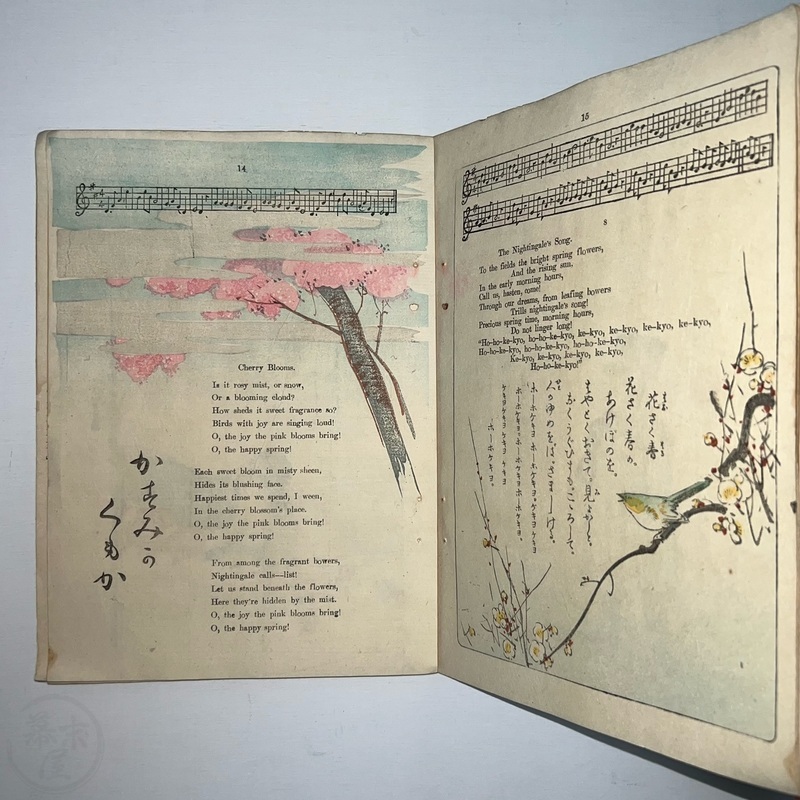 14
Cherry Blooms.
Is it rosy mist, or snow,
Or a blooming cloud?
How sheds it sweet fragrance so?
Birds with joy are singing loud!
O, the joy the pink blooms bring!
O, the happy spring!
Each sweet bloom in misty sheen,
Hides its blushing face.
Happiest times we spend, I ween,
In the cherry blossom's place.
O, the joy the pink blooms bring!
O, the happy spring!
From among the fragrant bowers,
Nightingale calls—list!
Let us stand beneath the flowers,
Here they're hidden by the mist.
O, the joy the pink blooms bring!
O, the happy spring!
かすみか
くもか
15
8
The Nightingale's Song.
To the fields the bright spring flowers,
And the rising sun.
In the early morning hours,
Call us, hasten, come!
Through our dreams, from leafing bowers
Trills nightingale's song!
Precious spring time, morning hours,
Do not linger long!
"Ho-ho-ke-kyo, ho-ho-ke-kyo, ke-kyo, ke-kyo, ke-kyo, ke-kyo,
Ho-ho-ke-kyo, ho-ho-ke-kyo, ho-ho-ke-kyo,
Ke-kyo, ke-kyo, ke-kyo, ke-kyo,
Ho-ho-ke-kyo!"
花さく春
花さく春の。
あけぼのを。
はやとくおきて。見よかしと。
なくうぐひすも。こころして。
人のゆめをば。さましける。
ホーホケキヨ
ケキヨケキヨケキヨケキヨ
ホーホケキヨ。
幕末屋